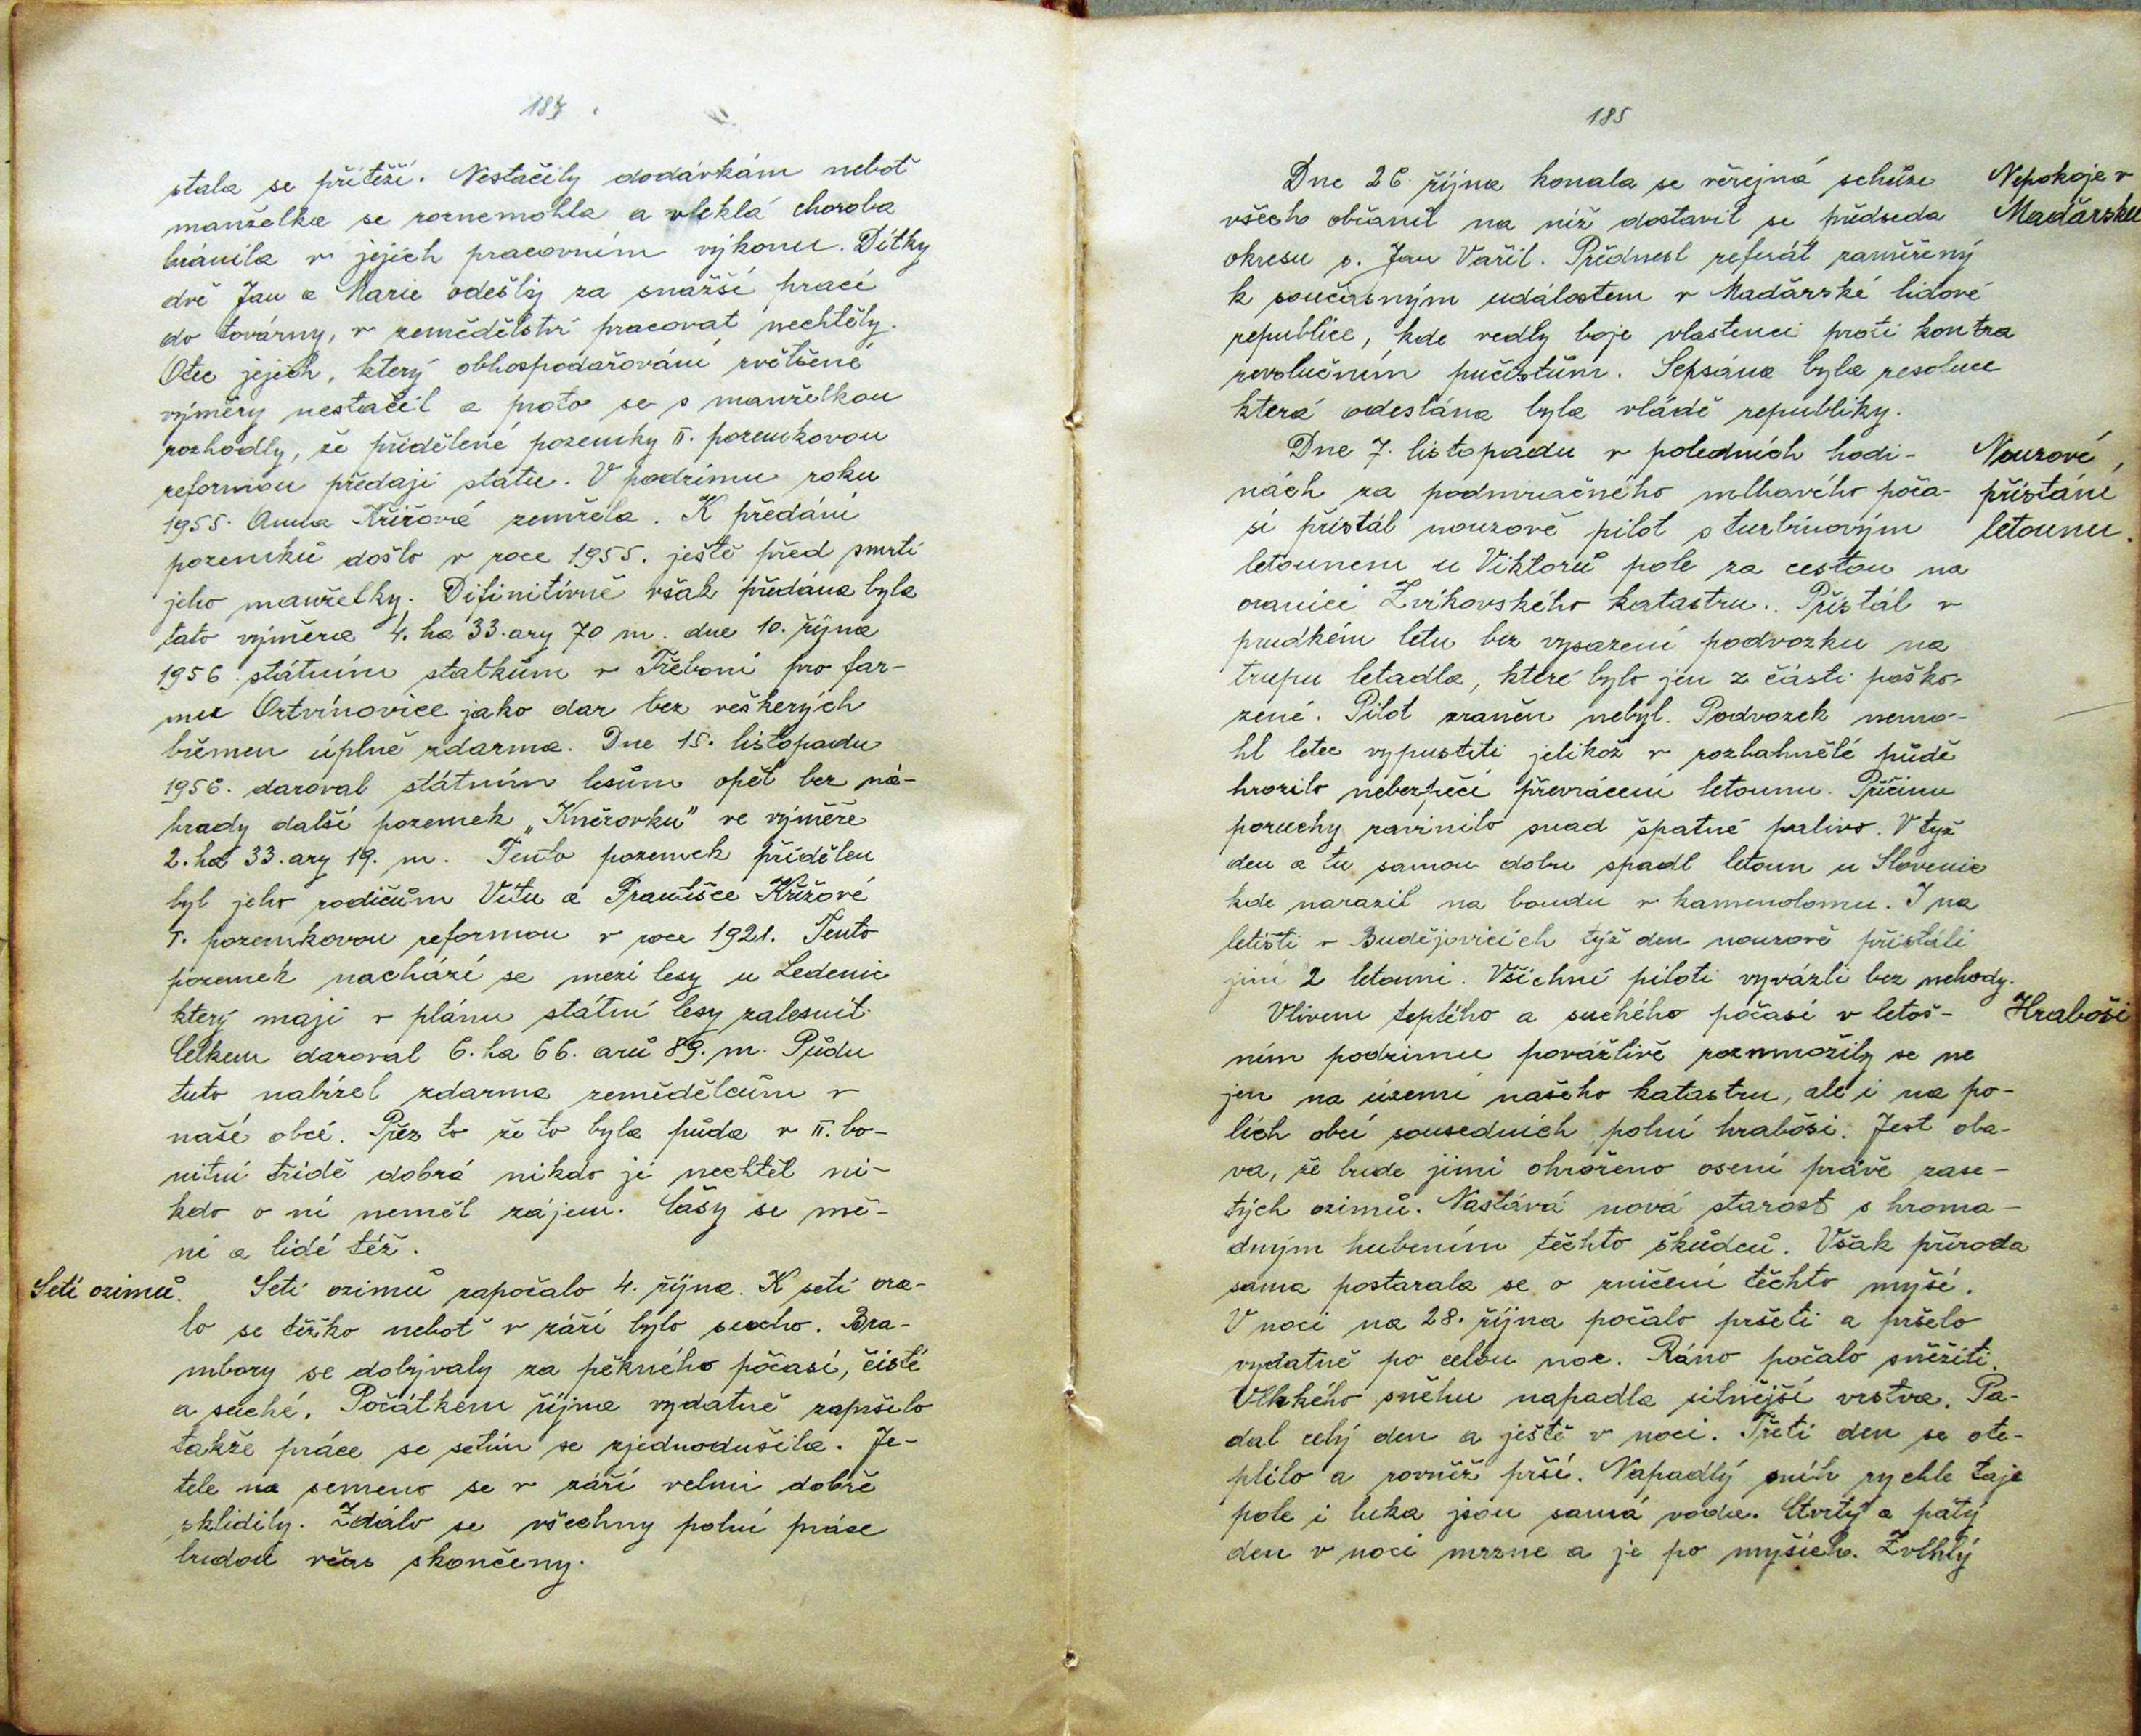 184
stala se přítěží. Nestačily dodávkám neboť
manželka se roznemohla a vleklá choroba
bránila v jejich pracovním výkonu. Dítky
dvě Jan a Marie odešly za snažší prací
do továrny, v zemědělství pracovat nechtěly.
Otec jejich, který obhospodařování zvětšené
výměry nestačil a proto se s manželkou
rozhodly, že přidělené pozemky II. pozemkovou
reformou předají státu. V podzimu roku
1955. Anna Křížová zemřela. K předání
pozemků došlo v roce 1955. ještě před smrtí
jeho manželky. Difinitívně však předána byla
tato výměra 4. ha 33. ary 70 m. dne 10. října
1956 státním statkům v Třeboni pro far-
mu Ortvínovice jako dar bez veškerých
břemen úplně zdarma. Dne 15. listopadu
1956. daroval státním lesům opět bez ná-
hrady další pozemek „Kněžovku" ve výměře
2. ha 33. ary 19. m. Tento pozemek přidělen
byl jeho rodičům Vítu a Františce Křížové
I. pozemkovou reformou v roce 1921. Tento
pozemek nachází se mezi lesy u Ledenic
který mají v plánu státní lesy zalesnit.
Celkem daroval 6. ha 66. arů 89. m. Půdu
tuto nabízel zdarma zemědělcům v
naší obci. Přez to že to byla půda v II. bo-
nitní třídě dobrá nikdo ji nechtěl ni-
kdo o ní neměl zájem. Časy se mě-
ní a lidé též.
Setí ozimů. Setí ozimů započalo 4. října. K setí ora-
lo se těžko neboť v září bylo sucho. Bra-
mbory se dobývaly za pěkného počasí, čisté
a suché. Počátkem října vydatně zapršelo
takže práce se setím se zjednodušila. Je-
tele na semeno se v září velmi dobře
sklidily. Zdálo se všechny polní práce
budou včas skončeny.
185
Dne 26. října konala se veřejná schůze
Nepokoje v
všech občanů na niž dostavil se předseda
Maďarsku
okresu s. Jan Vařil. Přednesl referát zaměřený
k současným událostem v Maďarské lidové
republice, kde vedly boje vlastenci proti kontra
revolučním pučistům. Sepsána byla resoluce
která odeslána byla vládě republiky.
Dne 7. listopadu v poledních hodi-
Nouzové
nách za podmračného mlhavého poča-
přistání
sí přistál nouzově pilot s turbínovým
letounu.
letounem u Viktorů pole za cestou na
oranici Zvíkovského katastru. Přistál v
prudkém letu bez vysazení podvozku na
trupu letadla, které bylo jen z části poško-
zené. Pilot zraněn nebyl. Podvozek nemo-
hl letec vypustiti jelikož v rozbahnělé půdě
hrozilo nebezpečí převrácení letounu. Příčinu
poruchy zavinilo snad špatné palivo. V týž
den a tu samou dobu spadl letoun u Slovenic
kde narazil na boudu v kamenolomu. I na
letišti v Budějovicích týž den nouzově přistáli
jiní 2 letouni. Všichni piloti vyvázli bez nehody.
Vlivem teplého a suchého počasí v letoš-
Hraboši
ním podzimu povážlivě rozmnožily se ne
jen na území našeho katastru, ale i na po-
lích obcí sousedních polní hraboši. Jest oba-
va, že bude jimi ohroženo osení právě zase-
tých ozimů. Nastává nová starost s hroma-
dným hubením těchto škůdců. Však příroda
sama postarala se o zničení těchto myší.
V noci na 28. října počalo pršeti a pršelo
vydatně po celou noc. Ráno počalo sněžiti.
Vlhkého sněhu napadla silnější vrstva. Pa-
dal celý den a ještě v noci. Třetí den se ote-
plilo a rovněž prší. Napadlý sníh rychle taje
pole i luka jsou samá voda. Čtvrtý a pátý
den v noci mrzne a je po myších. Zvlhlý